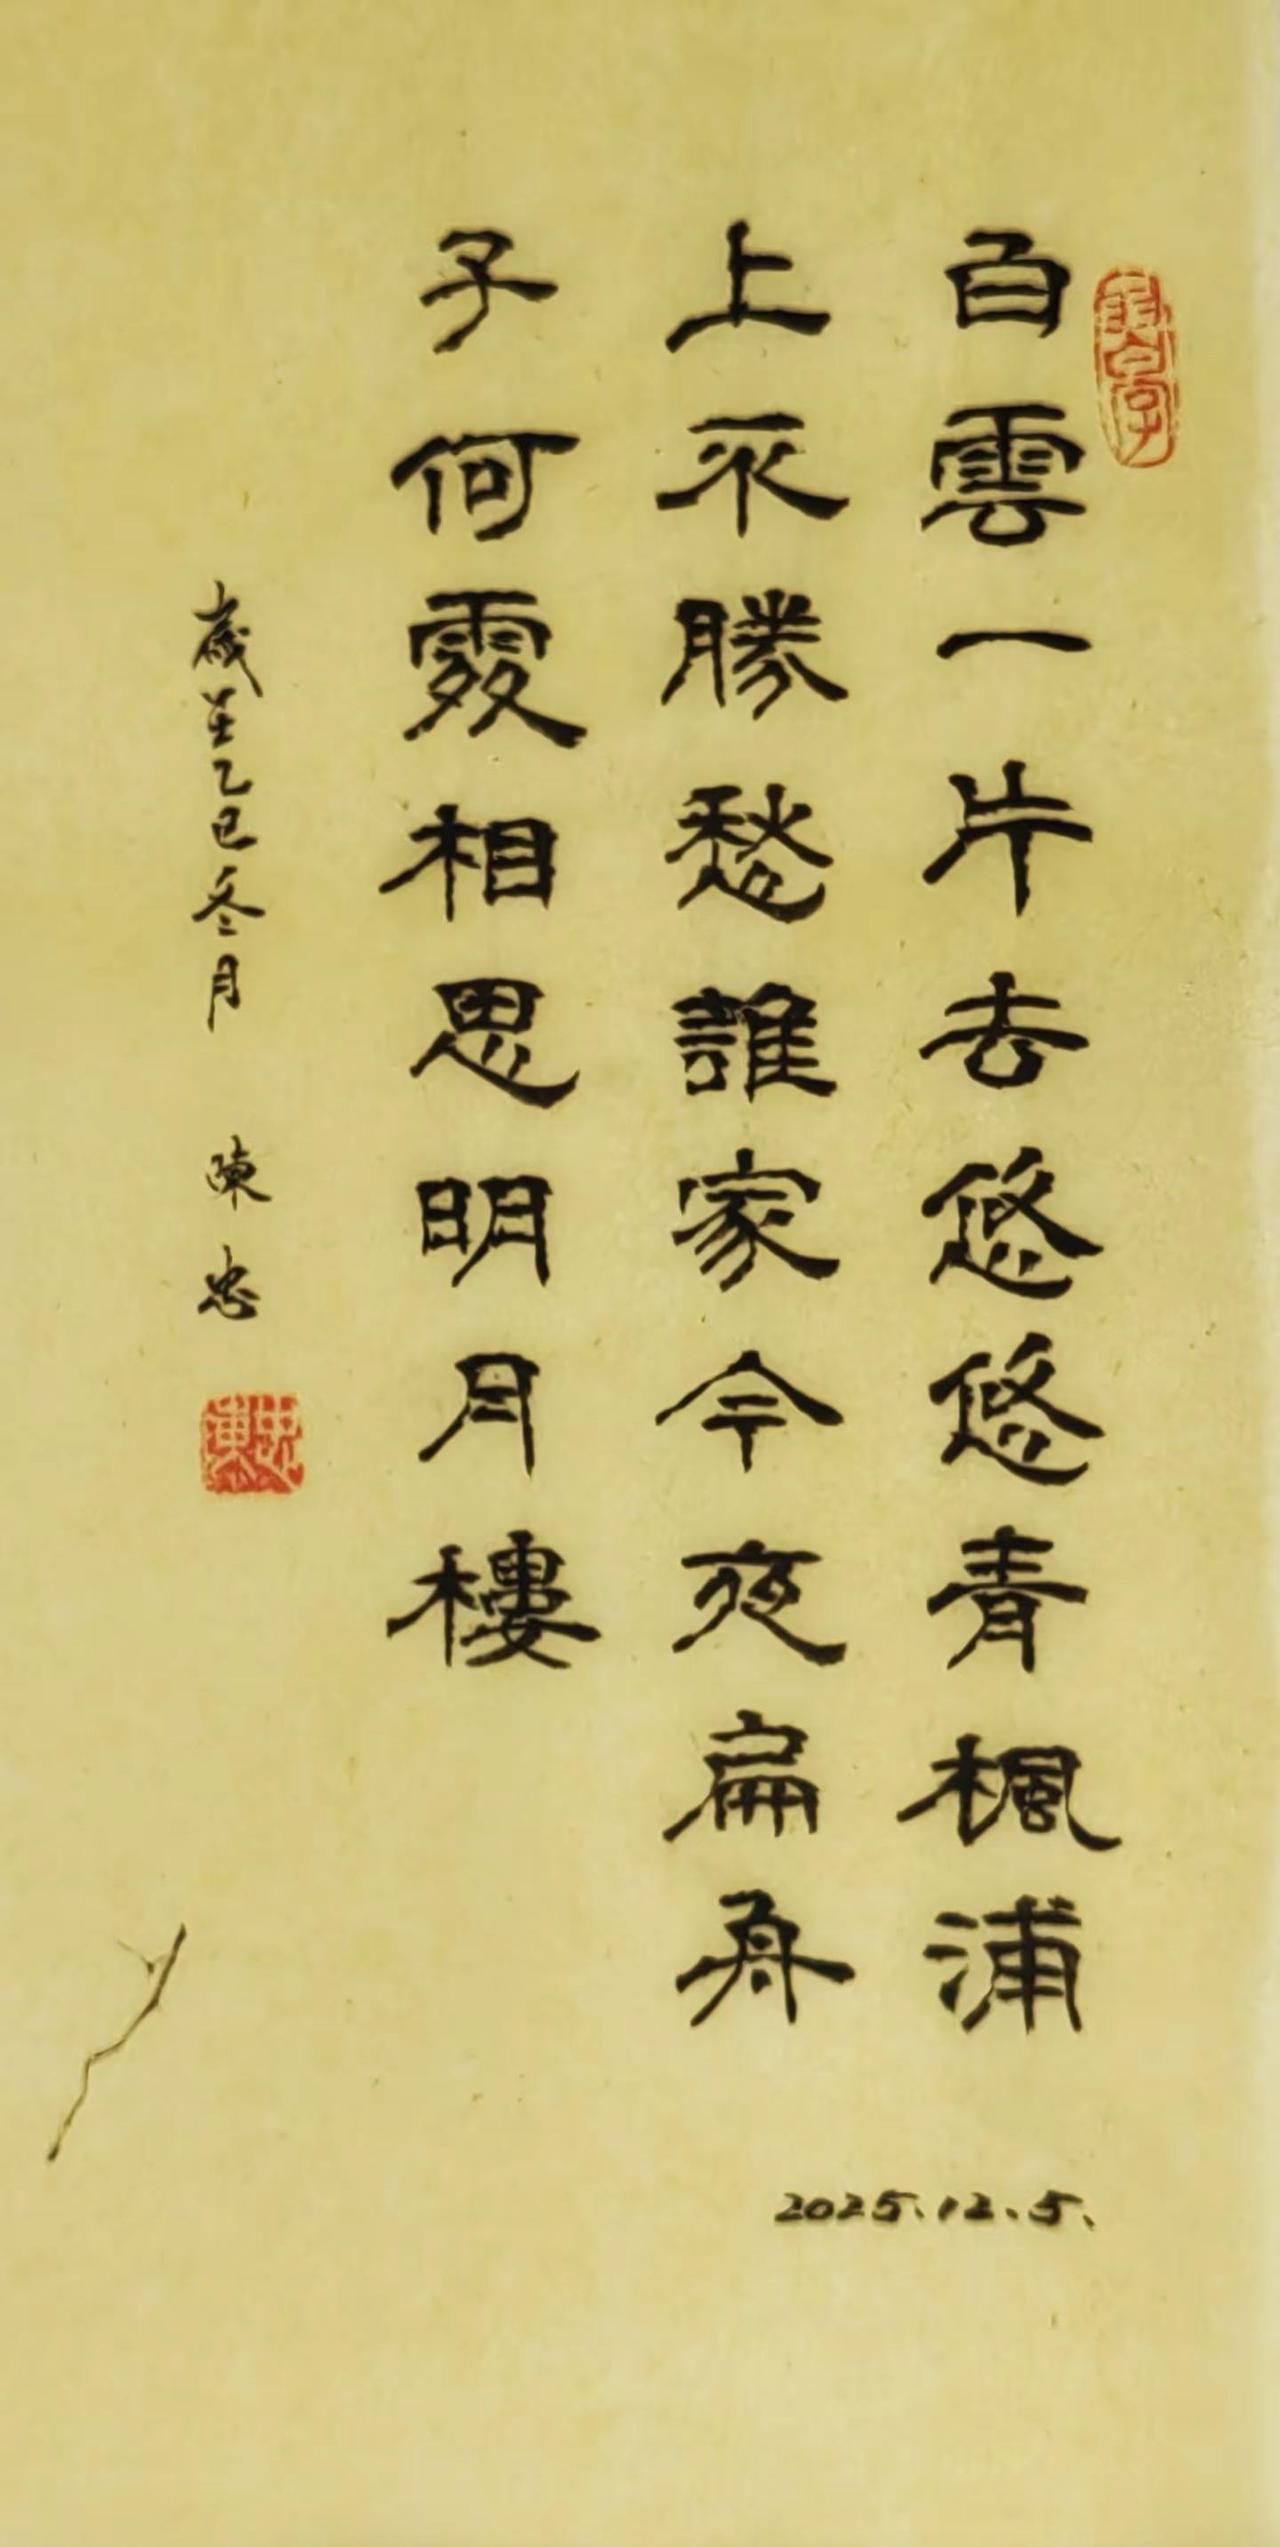 白雲一片去悠悠青楓浦
上不勝愁誰家今夜扁舟
子何處相思明月樓
歲在乙巳冬月 陳忠
陳忠
2025.12.5.